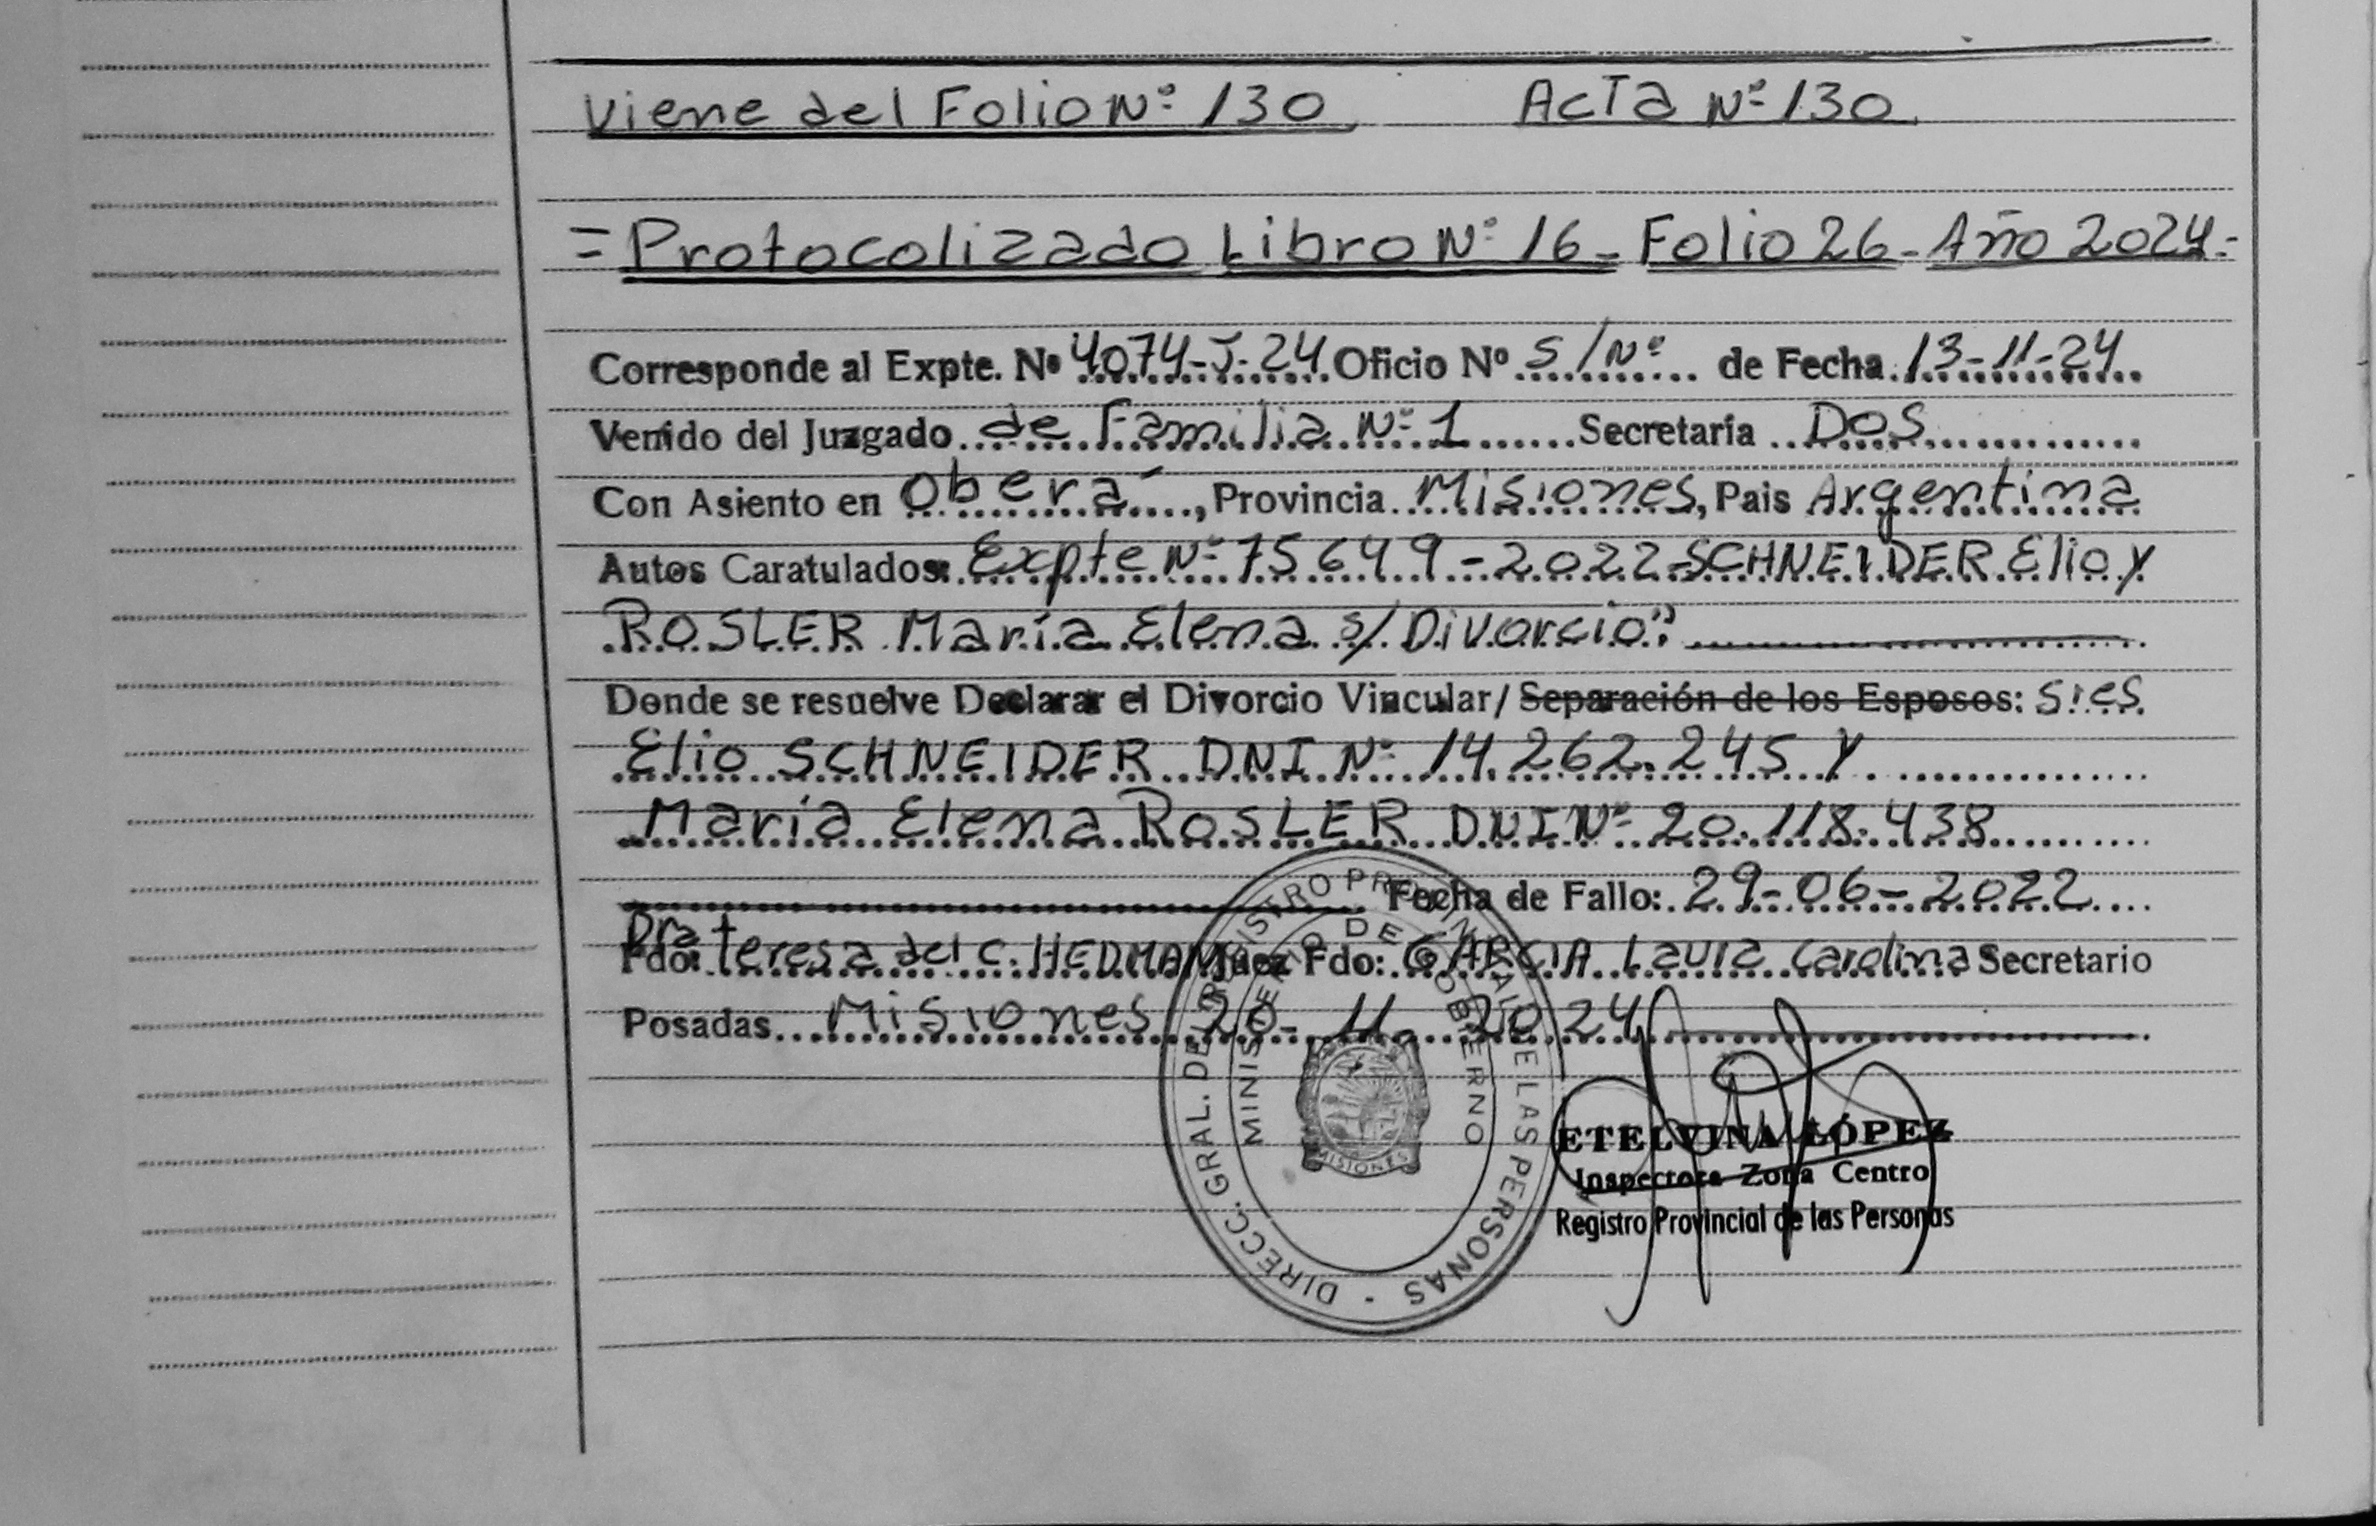 Viene del Folio Nº 130 Acta Nº 130
= Protocolizado Libro Nº 16 - Folio 26 - Año 2024 -
Corresponde al Expte. Nº 4074-J-24 Oficio Nº S/Nº de Fecha 13-11-24
Venido del Juzgado de Familia Nº 1 Secretaría Dos
Con Asiento en Oberá, Provincia Misiones, Pais Argentina
Autos Caratulados: Expte Nº 75649-2022-SCHNEIDER Elio y
ROSLER María Elena s/ Divorcio"
Donde se resuelve Declarar el Divorcio Vincular/ Separación de los Esposos: Sres
Elio SCHNEIDER DNI Nº 14.262.245 y
María Elena ROSLER DNI Nº 20.118.438
Fecha de Fallo: 29-06-2022
Fdo: Dra Teresa del C. HEDMAN Juez Fdo: GARCIA Laura Carolina Secretario
Posadas Misiones 20-11-2024
DIRECC. GRAL. DEL REGISTRO PROVINCIAL DE LAS PERSONAS -
MINISTERIO DE GOBIERNO
MISIONES
ETELVINA LÓPEZ
Inspectora Zona Centro
Registro Provincial de las Personas